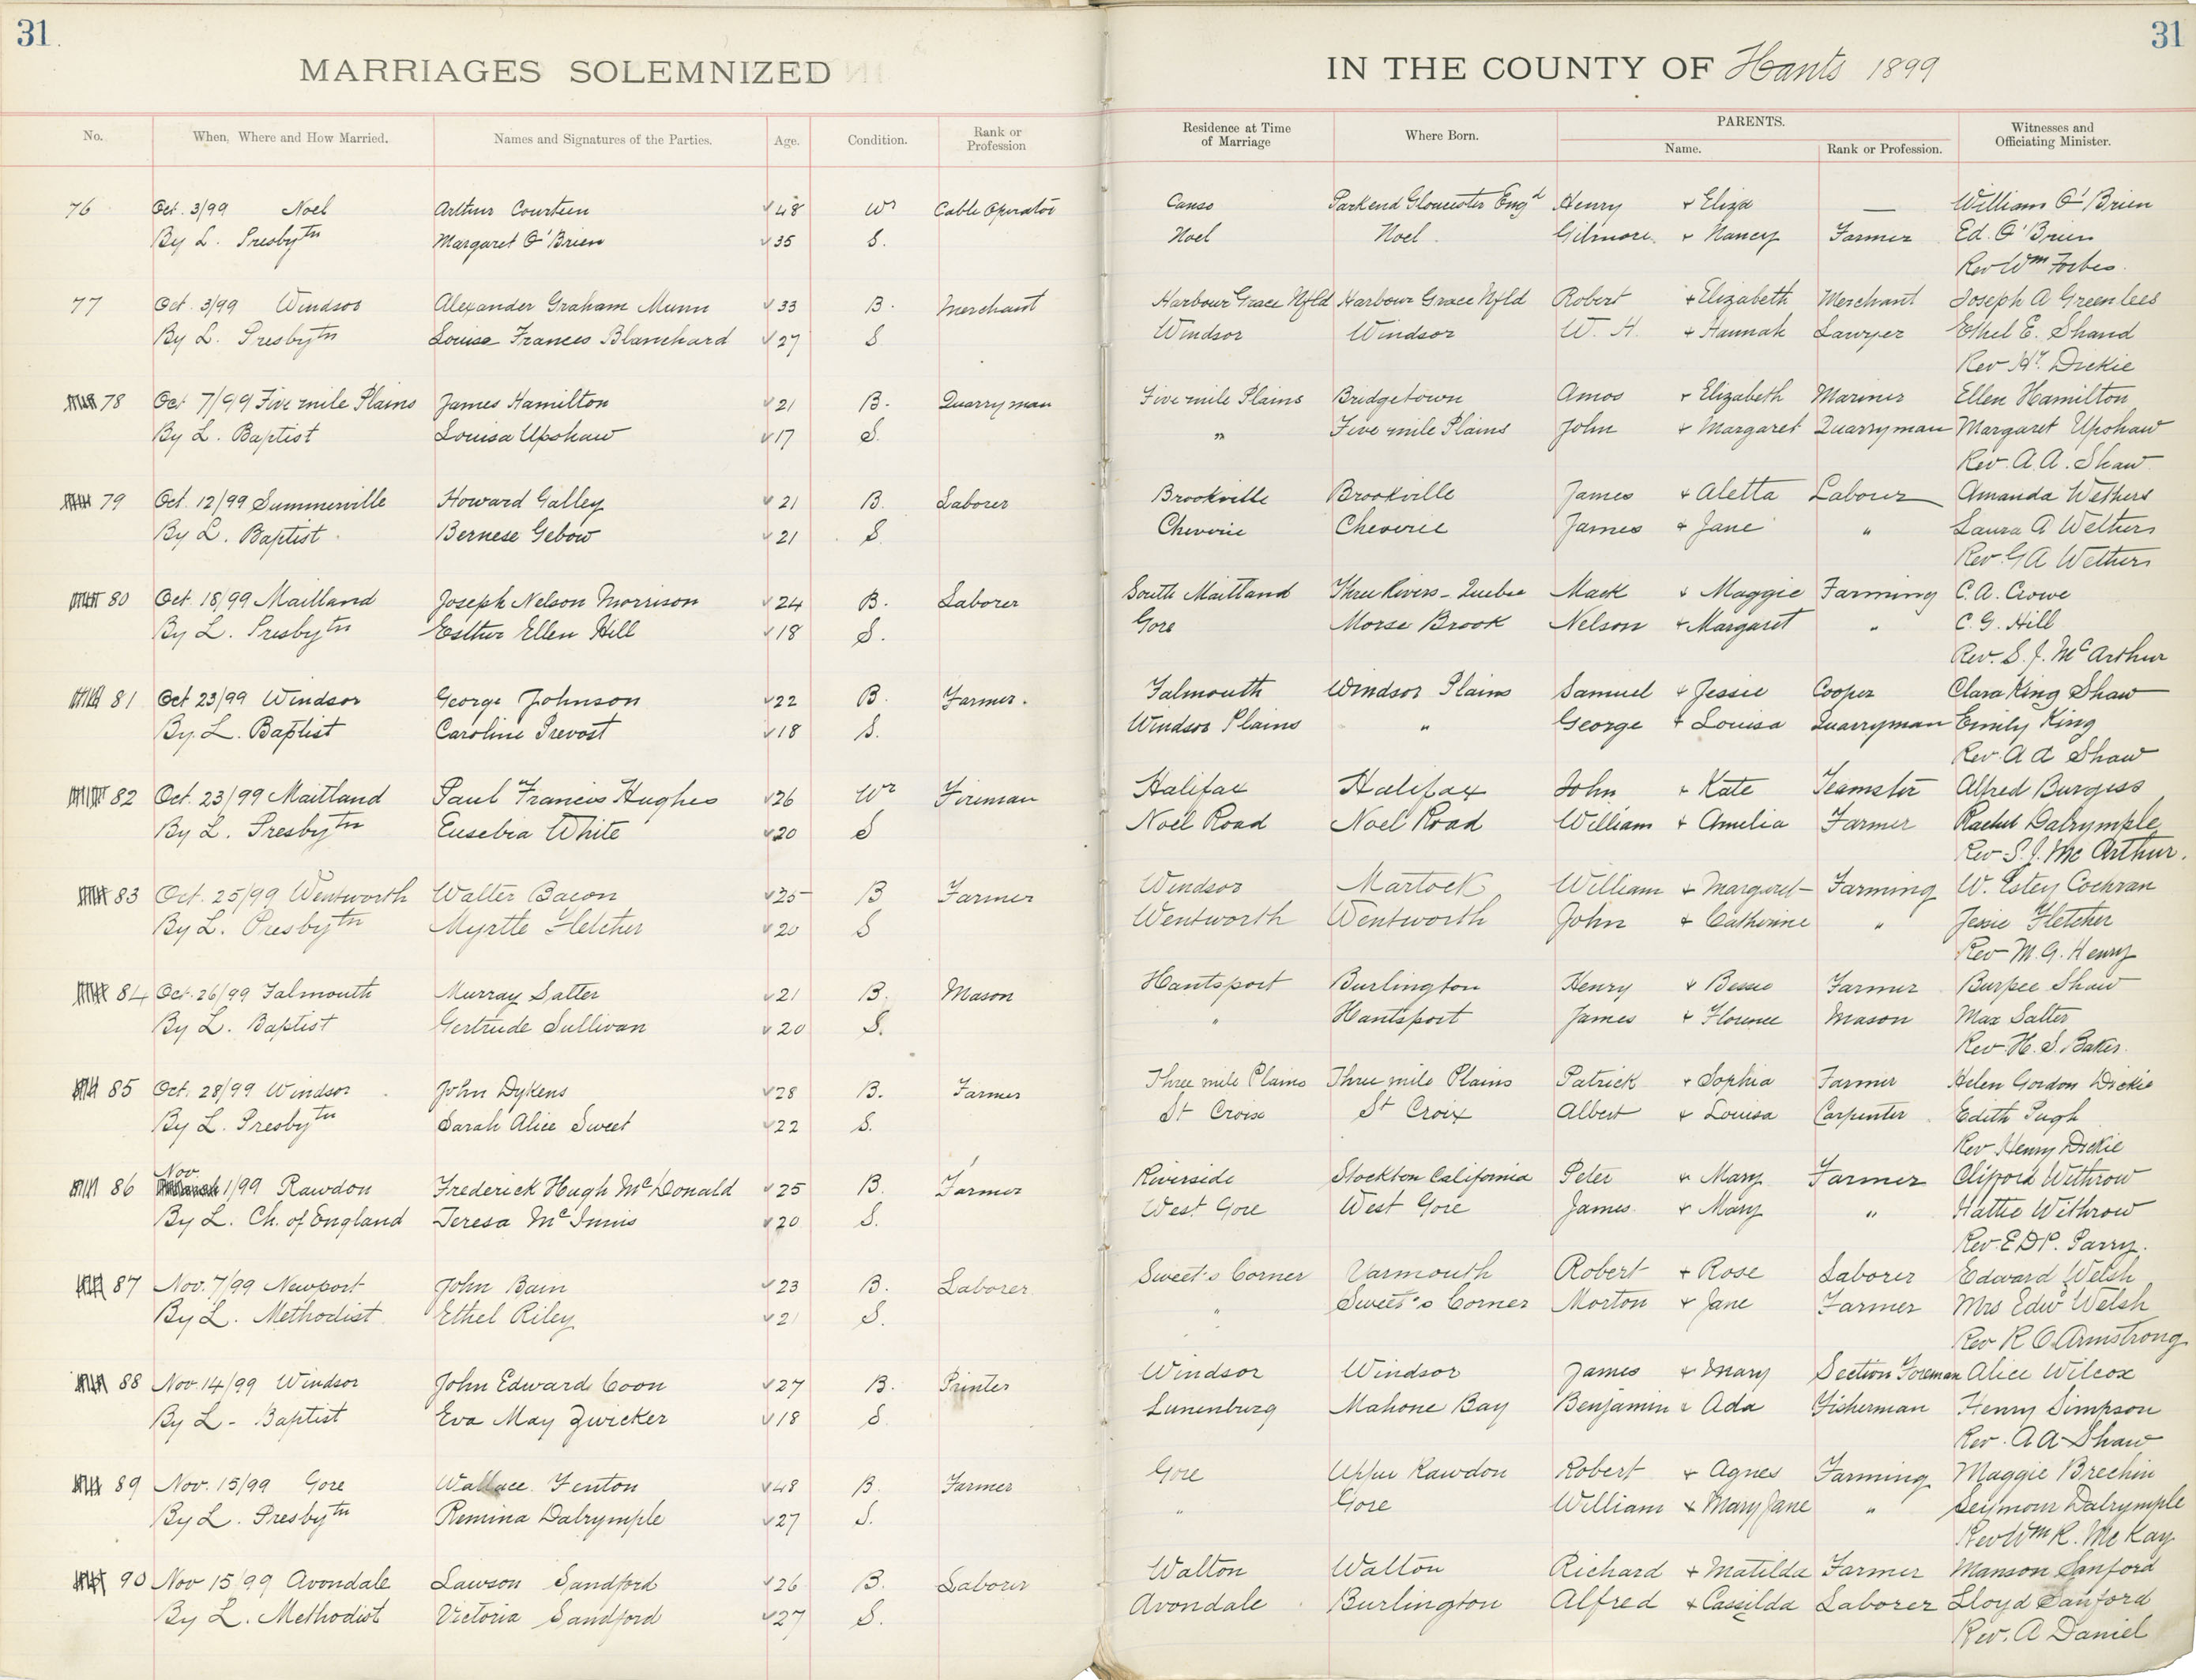 31. 31
MARRIAGES SOLEMNIZED IN THE COUNTY OF Hants 1899
No. When, Where and How Married. Names and Signatures of the Parties. Age. Condition. Rank or Profession Residence at Time of Marriage Where Born. PARENTS. Name. Rank or Profession. Witnesses and Officiating Minister.
76 Oct. 3/99 Noel Arthur Courteen 48 Wr Cable Operator Canso Parkend Gloucester Engd Henry + Eliza — William O'Brien
By L. Presbytn Margaret O'Brien 35 S. Noel Noel Gilmore + Nancy Farmer Ed. O'Brien
Rev Wm Forbes.
77 Oct. 3/99 Windsor Alexander Graham Munn 33 B. Merchant Harbour Grace Nfld Harbour Grace Nfld Robert + Elizabeth Merchant Joseph A Greenlees
By L. Presbytn Louise Frances Blanchard 27 S Windsor Windsor W. H. + Hannah Lawyer Ethel E. Shand
Rev Hy Dickie
78 Oct 7/99 Five mile Plains James Hamilton 21 B. Quarryman Five mile Plains Bridgetown Amos + Elizabeth Mariner Ellen Hamilton
By L. Baptist Louisa Upshaw 17 S. " Five mile Plains John + Margaret Quarryman Margaret Upshaw
Rev. A. A. Shaw
79 Oct. 12/99 Summerville Howard Galley 21 B. Laborer Brookville Brookville James + Aletta Laborer Amanda Wethers
By L. Baptist Bernese Gebow 21 S. Cheverie Cheverie James + Jane " Laura A Wethers
Rev. G A Wethers
80 Oct. 18/99 Maitland Joseph Nelson Morrison 24 B. Laborer South Maitland Three Rivers - Quebec Mack + Maggie Farming C. A. Crowe
By L. Presbytn Esther Ellen Hill 18 S. Gore Morse Brook Nelson + Margaret " C. G. Hill
Rev. S. J. McArthur
81 Oct 23/99 Windsor George Johnson 22 B. Farmer. Falmouth Windsor Plains Samuel + Jessie Cooper Clara King Shaw
By L. Baptist Caroline Prevost 18 S. Windsor Plains " George + Louisa Quarryman Emily King
Rev. A A Shaw
82 Oct. 23/99 Maitland Paul Francis Hughes 26 Wr Fireman Halifax Halifax John + Kate Teamster Alfred Burgess
By L. Presbytn Eusebia White 20 S Noel Road Noel Road William + Amelia Farmer Rachel Dalrymple
Rev S. J. Mc Arthur.
83 Oct. 25/99 Wentworth Walter Bacon 25 B Farmer Windsor Martock William + Margaret Farming W. Estey Cochran
By L. Presbytn Myrtte Fletcher 20 S Wentworth Wentworth John + Catherine " Jessie Fletcher
Rev M. G. Henry
84 Oct. 26/99 Falmouth Murray Salter 21 B. Mason Hantsport Burlington Henry + Bessie Farmer Burpee Shaw
By L. Baptist Gertrude Sullivan 20 S. " Hantsport James + Florence Mason Max Salter
Rev. H. S. Baker.
85 Oct. 28/99 Windsor John Dykens 28 B. Farmer Three mile Plains Three mile Plains Patrick + Sophia Farmer Helen Gordon Dickie
By L. Presbytn Sarah Alice Sweet 22 S. St Croix St Croix Albert + Louisa Carpenter Edith Pugh
Rev Henry Dickie
86 Nov 1/99 Rawdon Frederick Hugh McDonald 25 B. Farmer Riverside Stockton California Peter + Mary Farmer Clifford Withrow
By L. Ch. of England Teresa McInnis 20 S. West Gore West Gore James + Mary " Hattie Withrow
Rev. E D P. Parry.
87 Nov. 7/99 Newport John Bain 23 B. Laborer Sweet's Corner Yarmouth Robert + Rose Laborer Edward Welsh
By L. Methodist Ethel Riley 21 S. " Sweet's Corner Morton + Jane Farmer Mrs Edwd Welsh
Rev R O Armstrong
88 Nov. 14/99 Windsor John Edward Coon 27 B. Printer Windsor Windsor James + Mary Section Foreman Alice Wilcox
By L - Baptist Eva May Zwicker 18 S Lunenburg Mahone Bay Benjamin + Ada Fisherman Henry Simpson
Rev. A A Shaw
89 Nov. 15/99 Gore Wallace Fenton 48 B. Farmer Gore Upper Rawdon Robert + Agnes Farming Maggie Brechin
By L. Presbytn Remina Dalrymple 27 S. " Gore William + Mary Jane " Seymour Dalrymple
Rev Wm R. McKay
90 Nov 15/99 Avondale Lawson Sandford 26 B. Laborer Walton Walton Richard + Matilda Farmer Manson Sanford
By L. Methodist Victoria Sandford 27 S. Avondale Burlington Alfred + Cassilda Laborer Lloyd Sanford
Rev. A Daniel